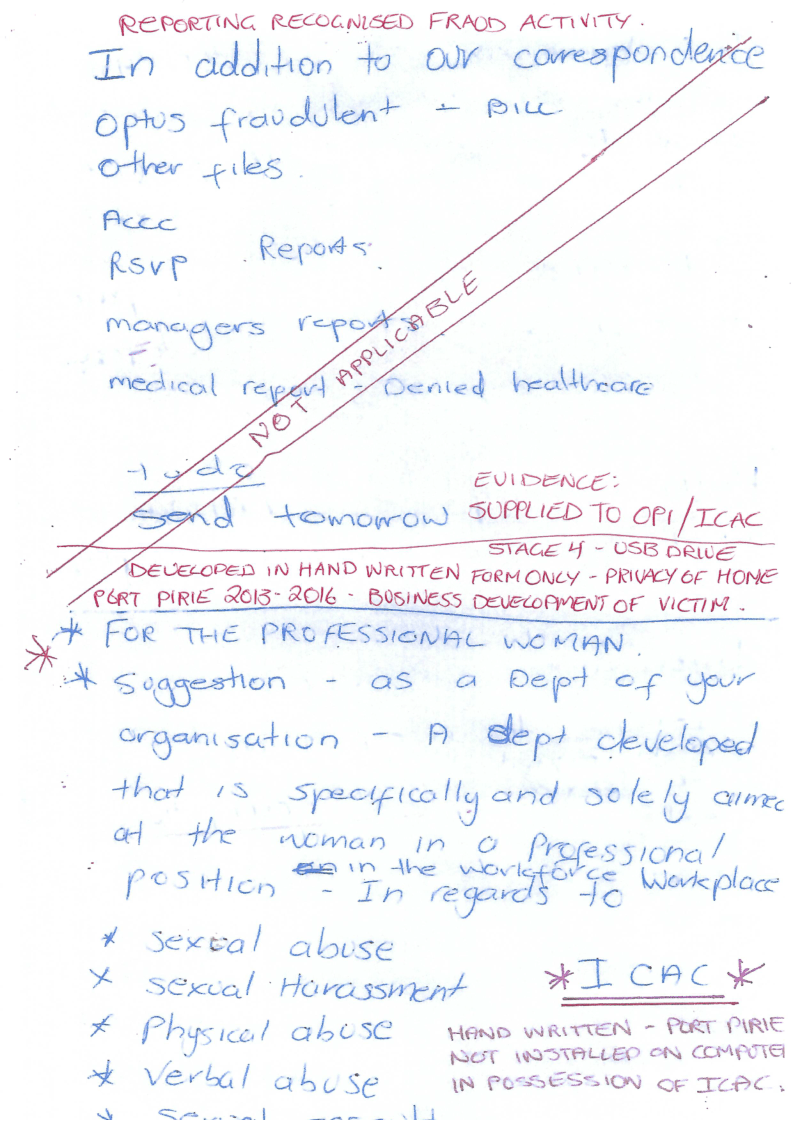 REPORTING RECOGNISED FRAUD ACTIVITY.
In addition to our correspondence
Optus fraudulent - BILL
Other files.
Accc
RSVP Reports
managers reports
medical report - Denied healthcare
NOT APPLICABLE
Send tomorrow
EVIDENCE:
SUPPLIED TO OPI/ICAC
STAGE 4 - USB DRIVE
DEVELOPED IN HAND WRITTEN FORM ONLY - PRIVACY OF HOME
PORT PIRIE 2013-2016 - BUSINESS DEVELOPMENT OF VICTIM.
* FOR THE PROFESSIONAL WOMAN.
* Suggestion - as a Dept of your
organisation - A dept developed
that is specifically and solely aimed
at the woman in a Professional
position in the workforce - In regards to Workplace
* Sexual abuse
* Sexual Harassment
* Physical abuse
* Verbal abuse
* ICAC *
HAND WRITTEN - PORT PIRIE
NOT INSTALLED ON COMPUTER
IN POSSESSION OF ICAC.